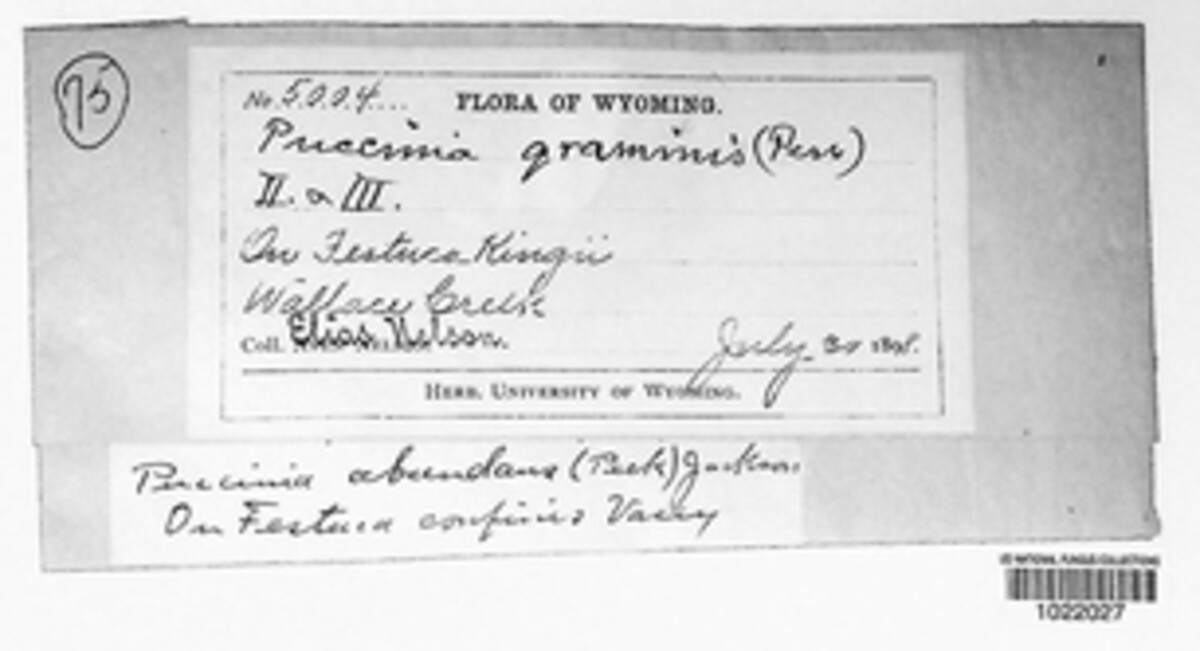 75
No. 5004... FLORA OF WYOMING.
Puccinia graminis (Pers)
II. & III.
On Festuca Kingii
Wallace Creek
Coll. Elias Nelson. July 30 1898.
HERB. UNIVERSITY OF WYOMING.
Puccinia abundans (Peck) Jackson
On Festuca confinis Vasey
US NATIONAL FUNGUS COLLECTIONS
1022027